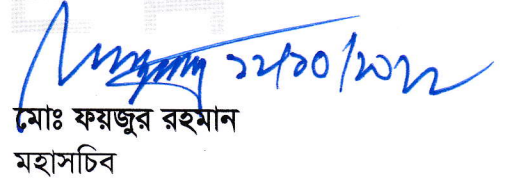 ১২/১০/২০২২
মোঃ ফয়জুর রহমান
মহাসচিব